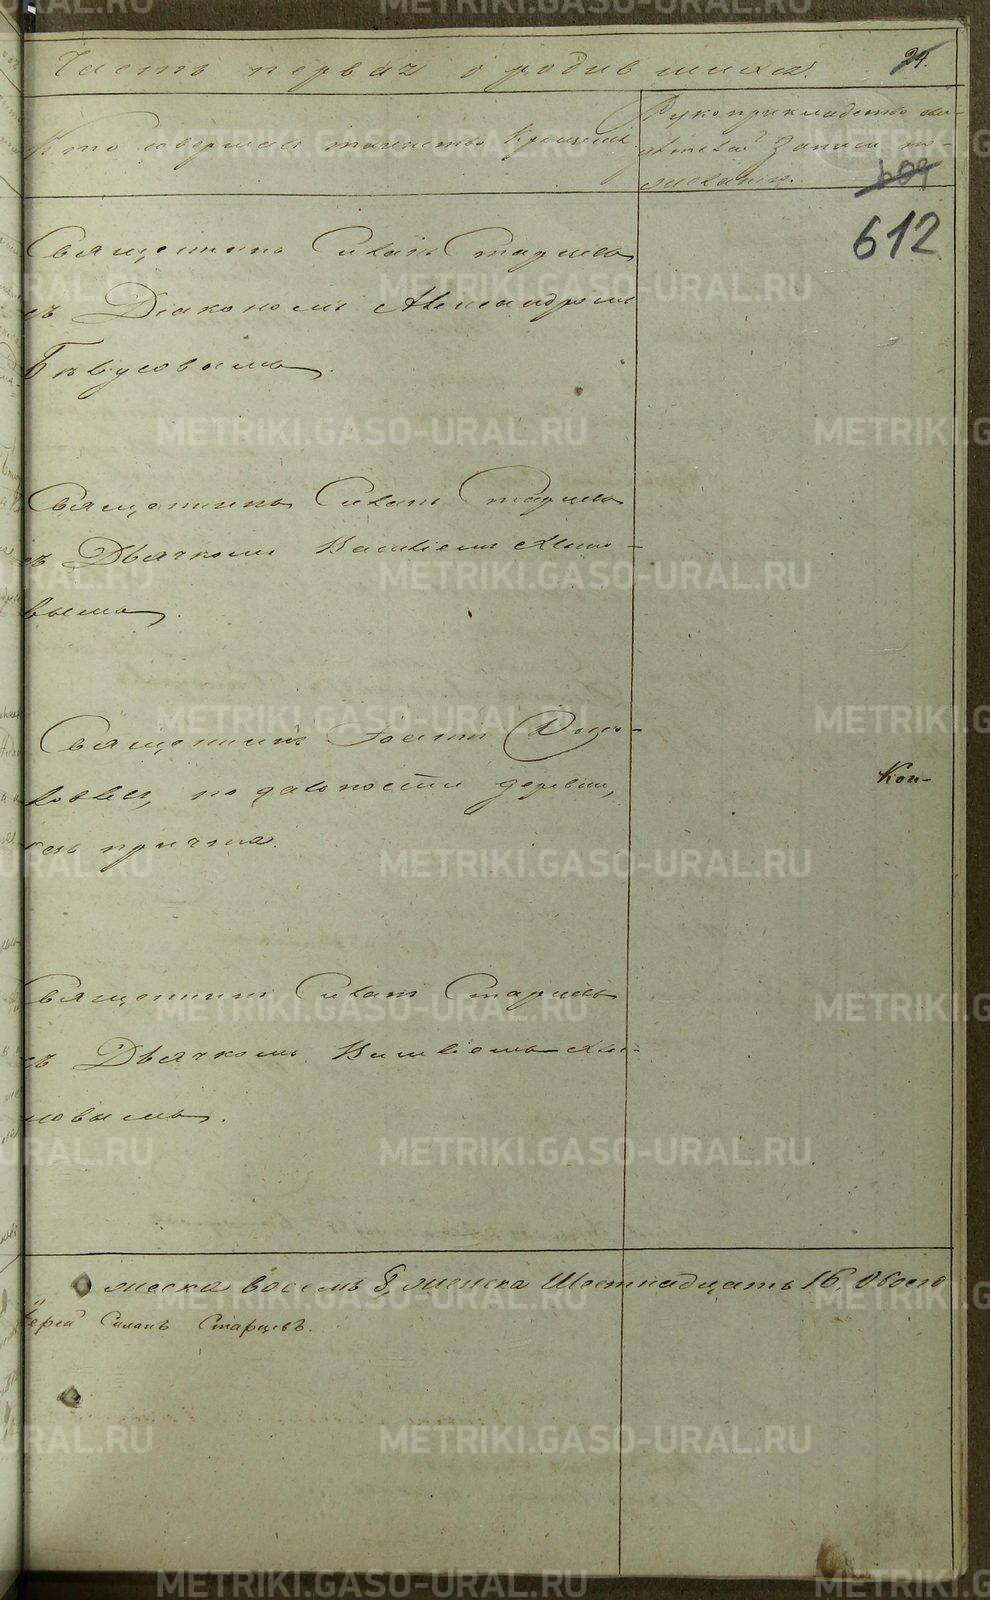 Часть первая о родившихся.
24.
Кто совершал таинство крещенія
Рукоприкладство сви-
дѣтелей записи по
желанію.
609
612
Священникъ Силанъ Старцевъ
съ Діакономъ Александромъ
Священникъ Силанъ Старцевъ
съ Дьячкомъ Василіемъ
вымъ.
Священникъ
по дальности деревни,
безъ причта.
Кон-
Священникъ Силанъ Старцевъ
съ Дьячкомъ Василіемъ
новымъ.
мужеска восемь 8, женска Шестнадцать 16. Обоего
Іерей Силанъ Старцевъ.
METRIKI.GASO-URAL.RU